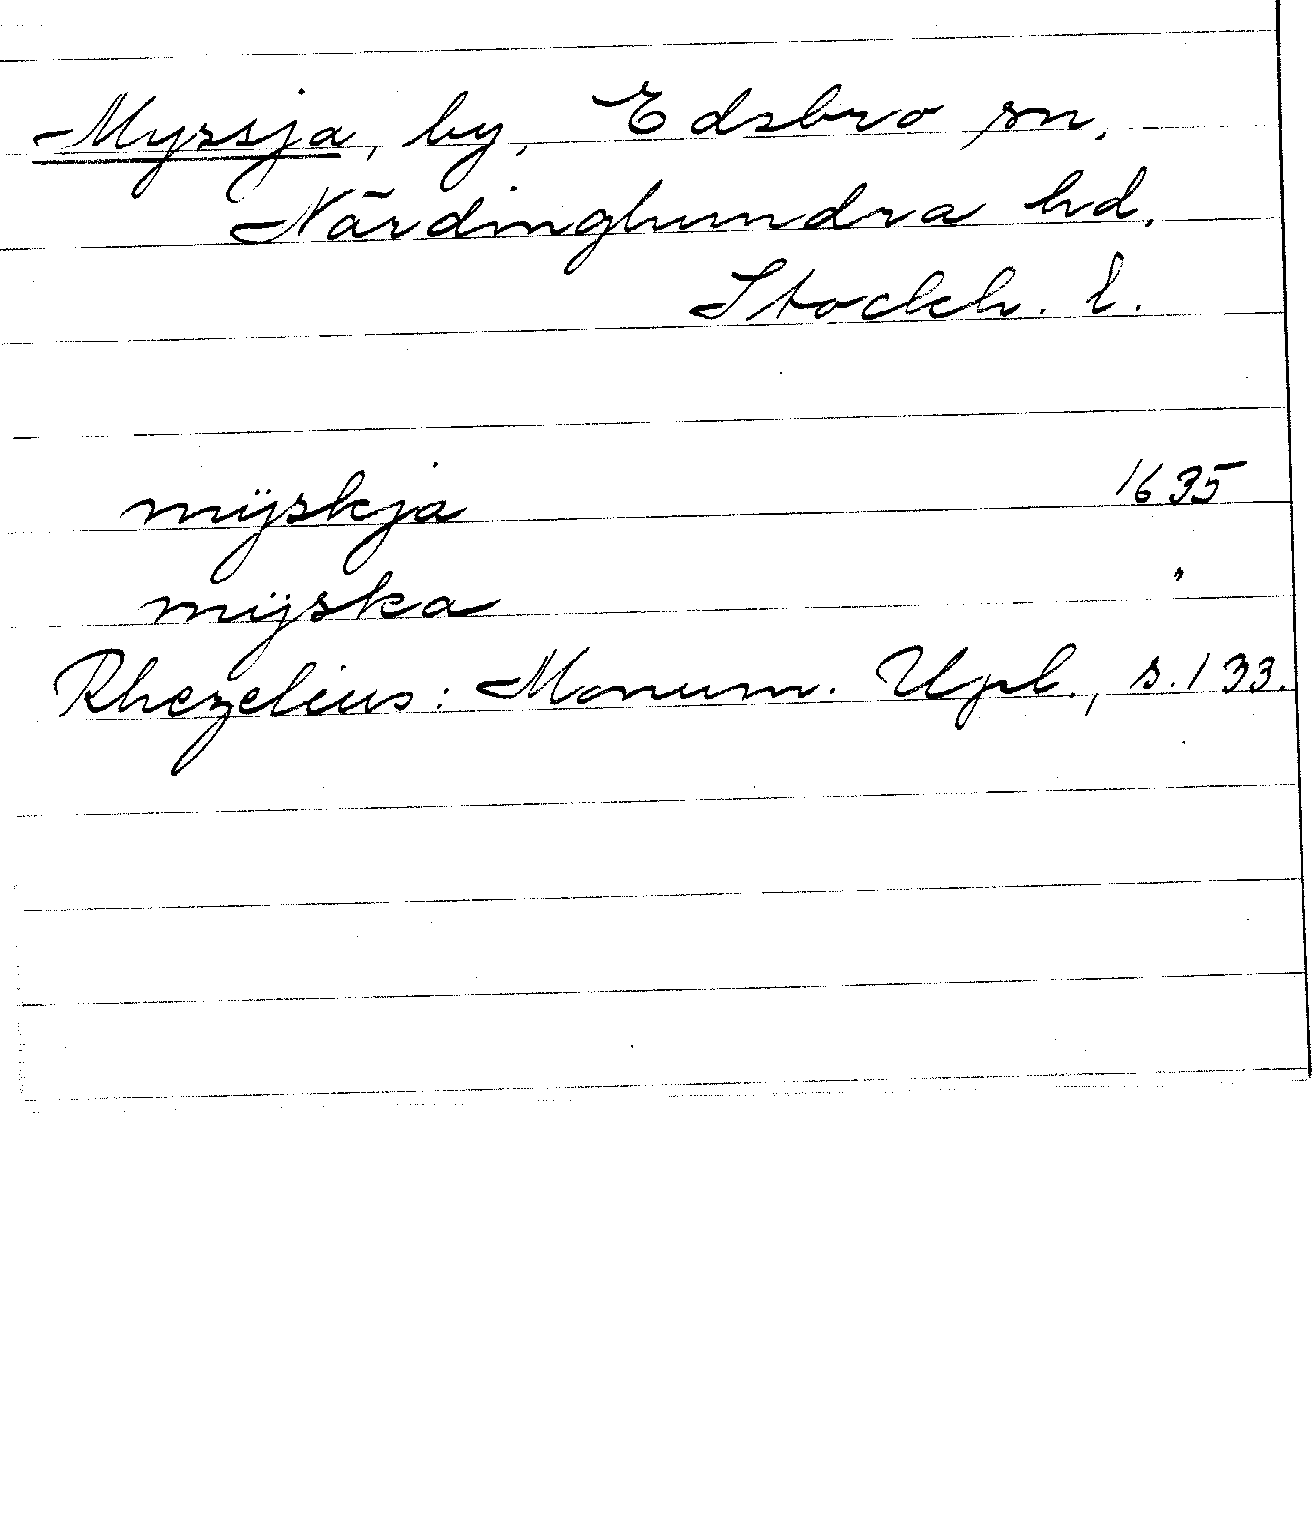 Myssja, by, Edsbro sn,
Närdinghundra hd.
Stockh. l.
mÿskja 1635
mÿska "
Rhezelius: Monum. Upl., s. 133.